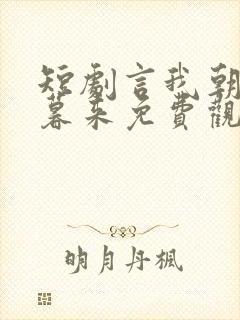 短劇言我朝
暮來免費觀
明月丹楓